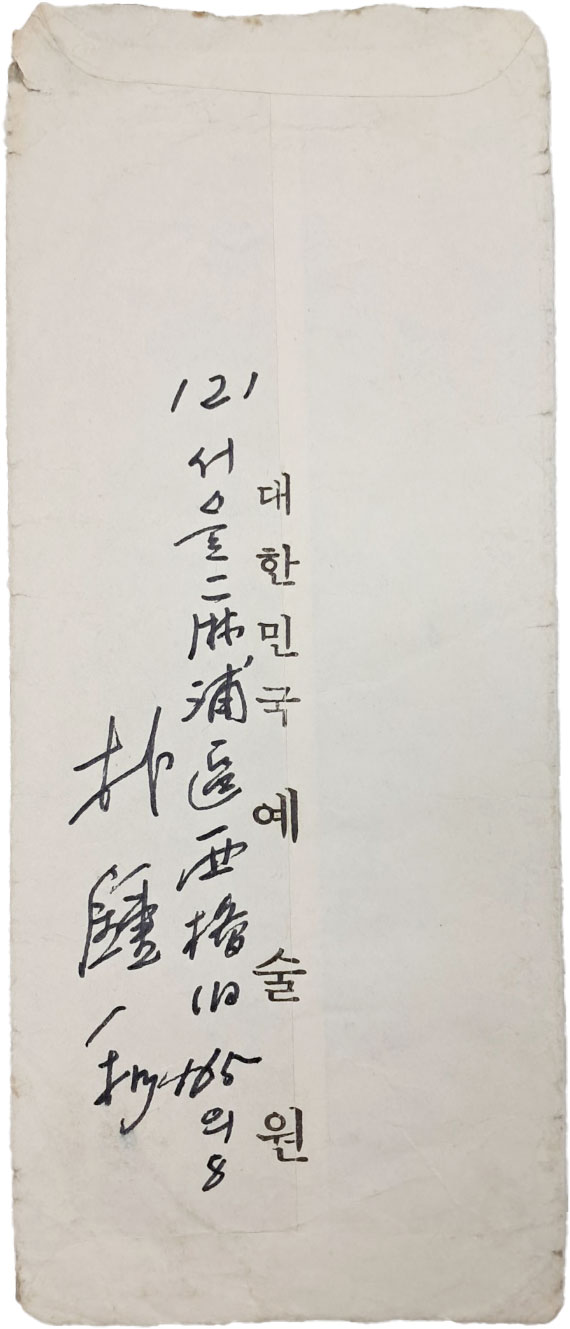 대한민국 예술원
121
서울二麻浦區西橋洞 465의 8
朴